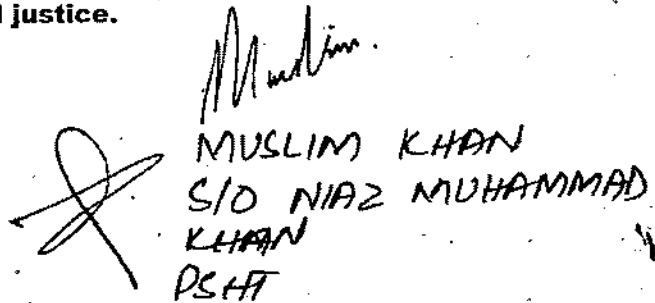 justice.
Muslim.
MUSLIM KHAN
S/O NIAZ MUHAMMAD
KHAN
PSHT